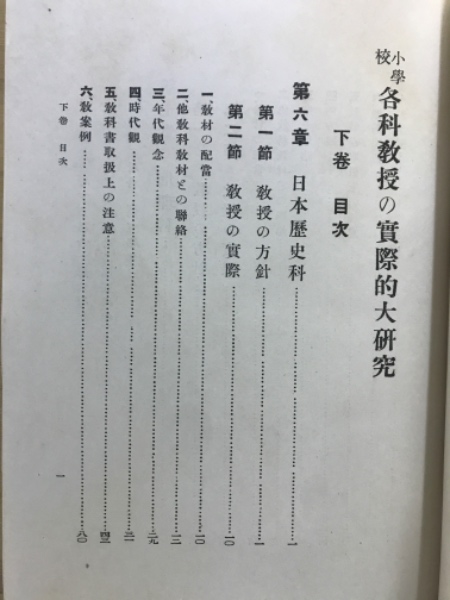 小學校 各科敎授の實際的大硏究
下卷 目次
第六章 日本歷史科……一
第一節 敎授の方針……一
第二節 敎授の實際……一〇
一、敎材の配當……一〇
二、他敎科敎材との聯絡……一二
三、年代觀念……二九
四、時代觀……三一
五、敎科書取扱上の注意……四三
六、敎案例……八〇
下卷 目次
一